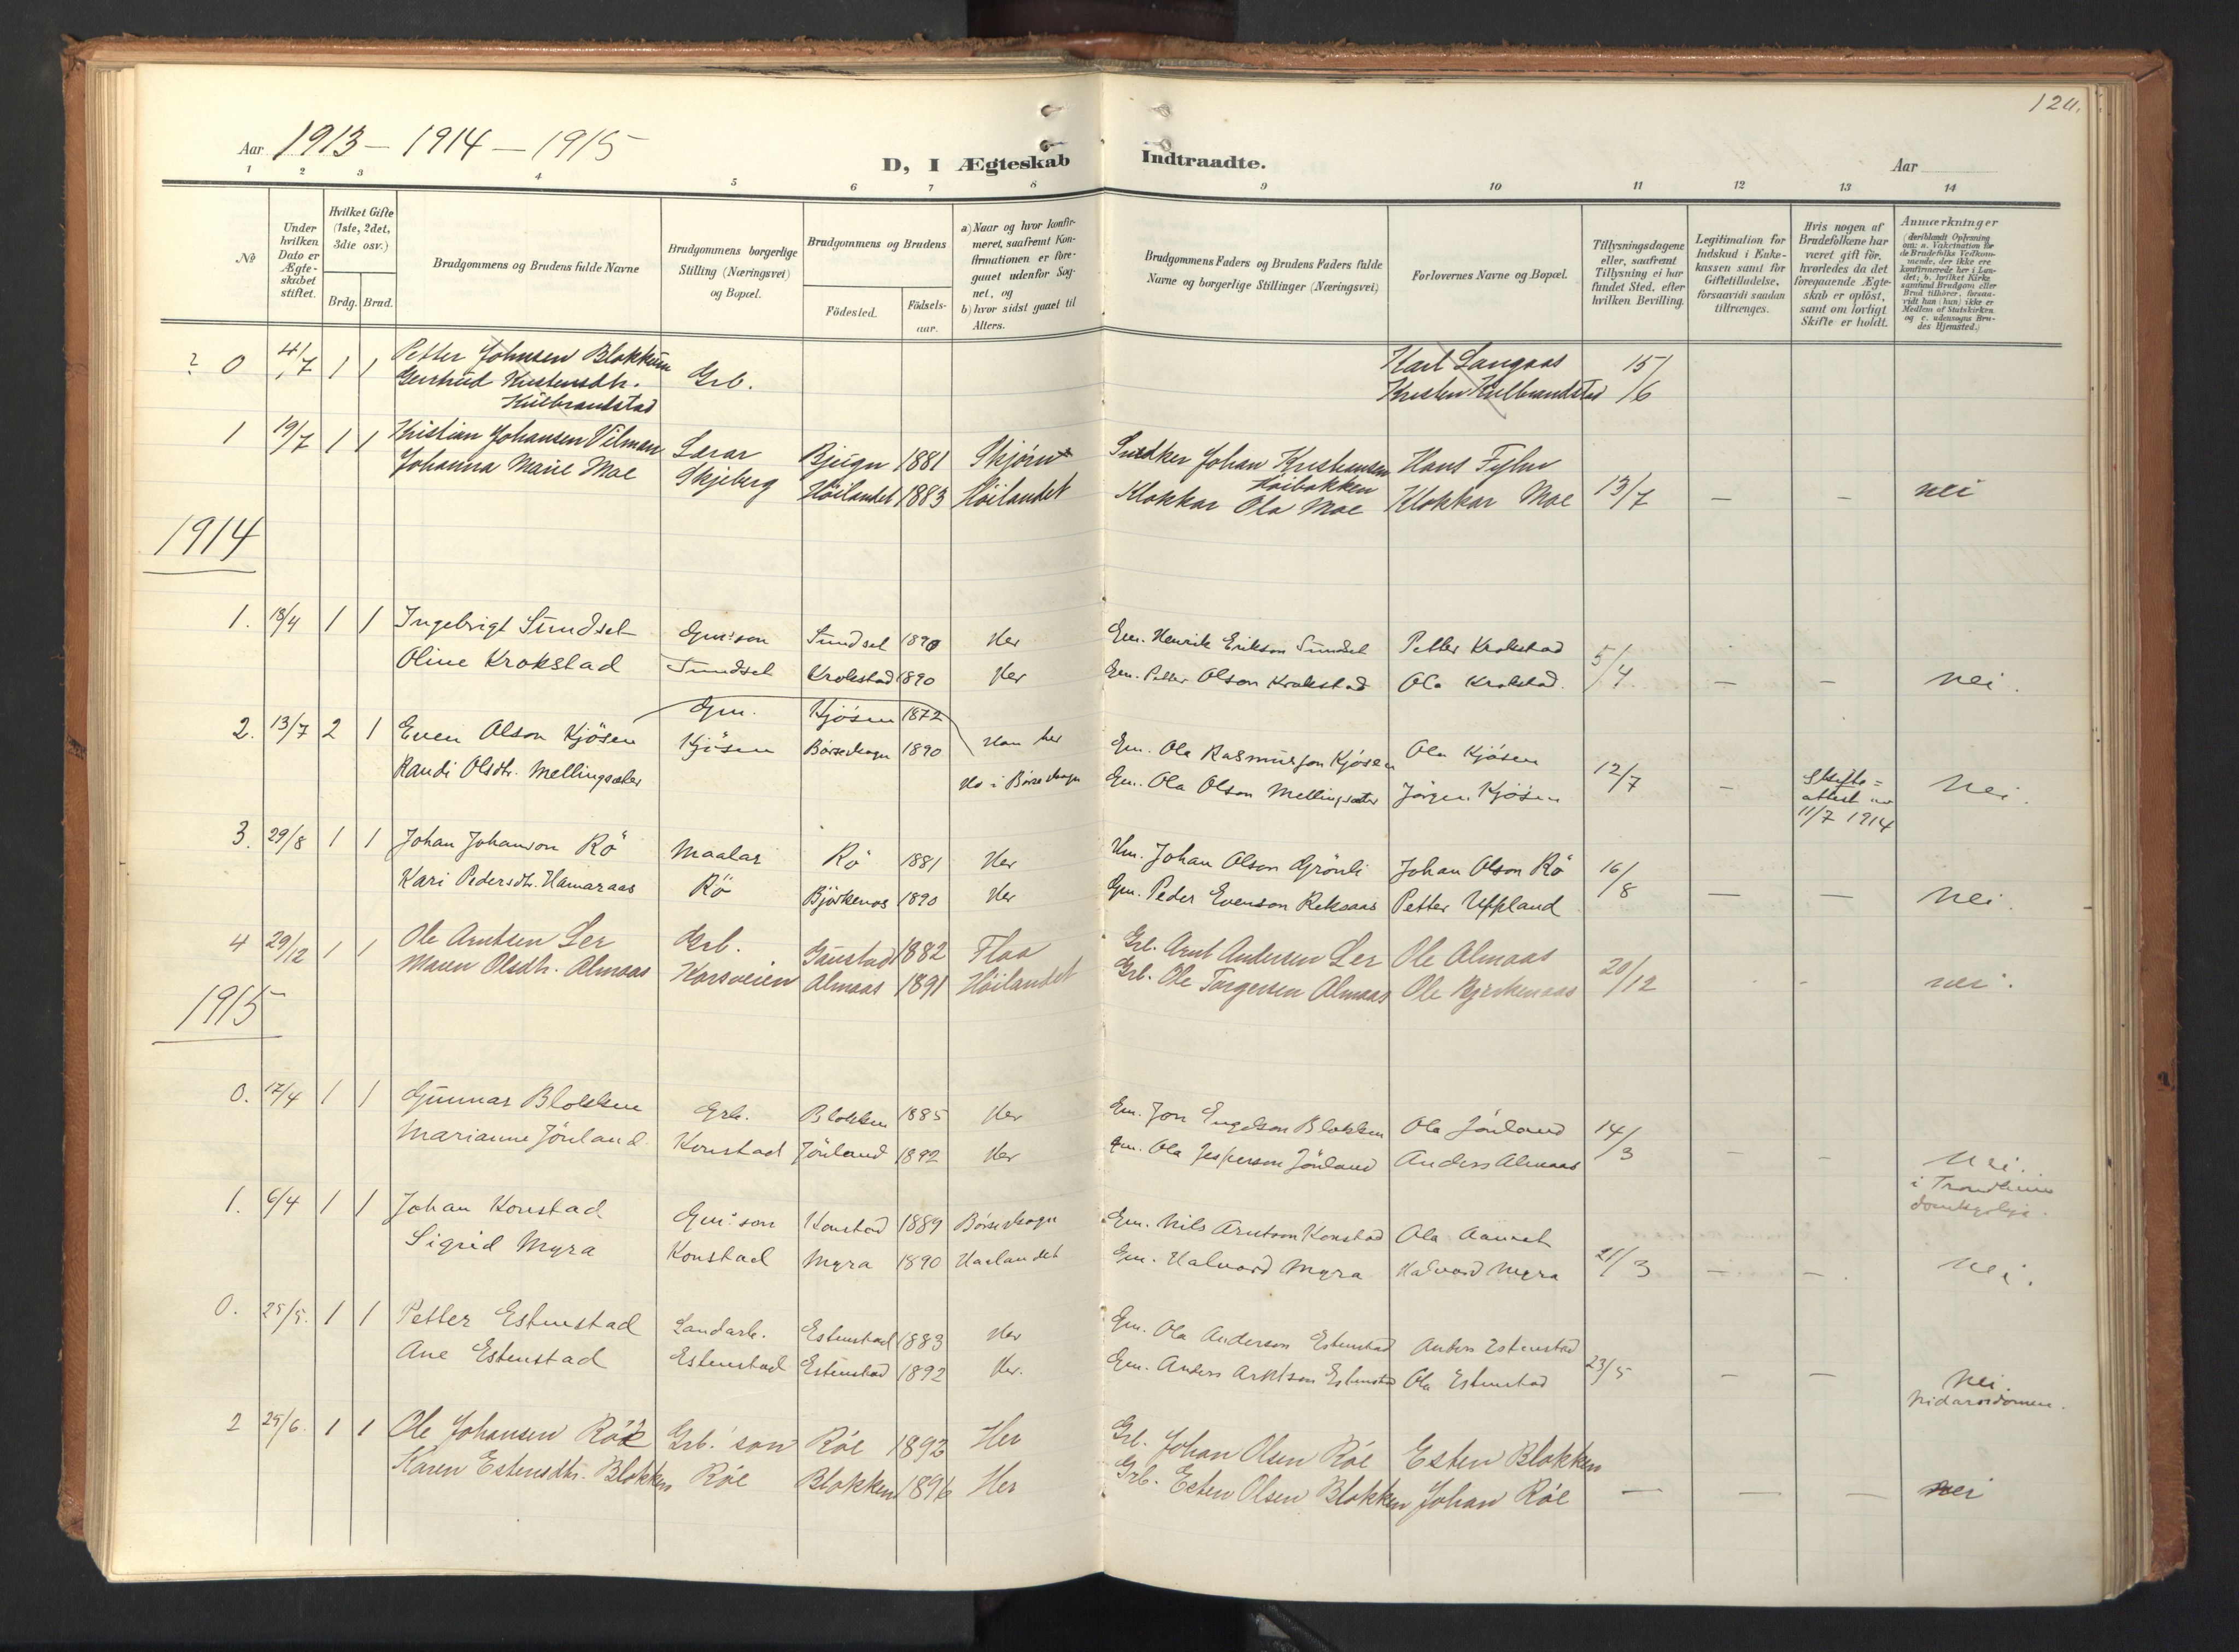 124.
Aar 1913 – 1914 – 1915
D, I Ægteskab Indtraadte.
Aar
1 2 3 4 5 6 7 8 9 10 11 12 13 14
No
Under hvilken Dato er Ægte-skabet stiftet.
Hvilket Gifte (1ste, 2det, 3die osv.)
Brdg. Brud.
Brudgommens og Brudens fulde Navne
Brudgommens borgerlige Stilling (Næringsvei) og Bopæl.
Brudgommens og Brudens
Födested. Födsels-aar.
a) Naar og hvor konfir-meret, saafremt Kon-firmationen er fore-gaaet udenfor Sog-net, og
b) hvor sidst gaaet til Alters.
Brudgommens Faders og Brudens Faders fulde Navne og borgerlige Stillinger (Næringsvei)
Forlovernes Navne og Bopæl.
Tillysningsdagene eller, saafremt Tillysning ei har fundet Sted, efter hvilken Bevilling.
Legitimation for Indskud i Enke-kassen samt for Giftetilladelse, forsaavidt saadan tiltrænges.
Hvis nogen af Brudefolkene har været gift för, hvorledes da det foregaaende Ægte-skab er oplöst, samt om lovligt Skifte er holdt.
Anmærkninger (deriblandt Oplysning om: a. Vakcination for de Brudefolks Vedkom-mende, der ikke ere konfirmerede her i Lan-det; b. hvilket Kirke-samfund Brudgom eller Brud tilhörer, forsaa-vidt han (hun) ikke er Medlem af Statskirken og c. udensogns Bru-des Hjemsted.)
? 0 4/7 1 1 Petter Johnsen Blokkum Grb. Karl Langaas 15/6
Gertrud Kristensdtr. Kristen Kulbrandstad
Kulbrandstad
1 19/7 1 1 Kristian Johansen Vilman Lærar Bjugn 1881 Skjørn Snedker Johan Kristiansen Hans Tylur
Høibakken
Johanna Marie Moe Skjeberg Høilandet 1883 Høilandet Klokkar Ola Moe Klokkar Moe 13/7 – – nei
1914
1. 13/4 1 1 Ingebrigt Sundset Gm.son Sundset 1890 Her Gm. Henrik Erikson Sundset Petter Krokstad 5/4
Oline Krokstad Sundset Krokstad 1890 Her Gm. Petter Olson Krokstad Ola Krokstad. – – Nei.
2. 13/7 2 1 Even Olson Kjösen Gm. Kjösen 1872 Han her Gm. Ola Rasmusson Kjösen Ola Kjösen 12/7
Randi Olsdtr. Mellingsæter Kjösen Börseskogn 1890 Ho i Börseskogn Gm. Ola Olson Mellingsæter Jörgen Kjösen – Skifte=attest av 11/7 1914 Nei.
3. 29/8 1 1 Johan Johanson Rö Maalar Rö 1881 Her Hm. Johan Olson Grönli Johan Olson Rö 16/8
Kari Pedersdtr. Hamaraas Rö Björkenos 1890 Her Gm. Peder Evenson Reksaas Petter Uffland – – Nei.
4 29/12 1 1 Ole Arntsen Ler Grb. Gaustad 1882 Flaa Grb. Arnt Andersen Ler Ole Almaas 20/12
Maren Olsdtr. Almaas Korsveien Almaas 1891 Høilandet Grb. Ole Torgersen Almaas Ole Bjerkenaas - nei.
1915
0. 17/4 1 1 Gunnar Blokken Grb. Blokken 1885 Her Gm. Jon Engelson Blokken Ola Jönland 14/3
Marianne Jönland. Konstad Jönland 1892 Her Gm. Ola Jesperson Jönland Anders Almaas – – Nei.
i Trondheims domkyrkje.
1. 6/4 1 1 Johan Konstad Gm.son Konstad 1889 Börseskogn Gm. Nils Arntson Konstad Ola Aaunet 21/3
Sigrid Myra Konstad Myra 1890 Haalandet Gm. Halvard Myra Halvard Myra – – Nei.
0. 25/5. 1 1 Petter Estenstad Landarb. Estenstad 1883 Her Gm. Ola Anderson Estenstad Anders Estenstad 23/5
Ane Estenstad Estenstad Estenstad 1892 Her. Gm. Anders Arntson Estenstad Ola Estenstad – – Nei.
Nidarosdomen.
2 25/6. 1 1 Ole Johansen Röe Grb. son Röe 1893 Her Grb. Johan Olsen Röe Esten Blokken
Karen Estensdtr. Blokken Röe Blokken 1896 Her Grb. Esten Olsen Blokken Johan Röe – – – nei